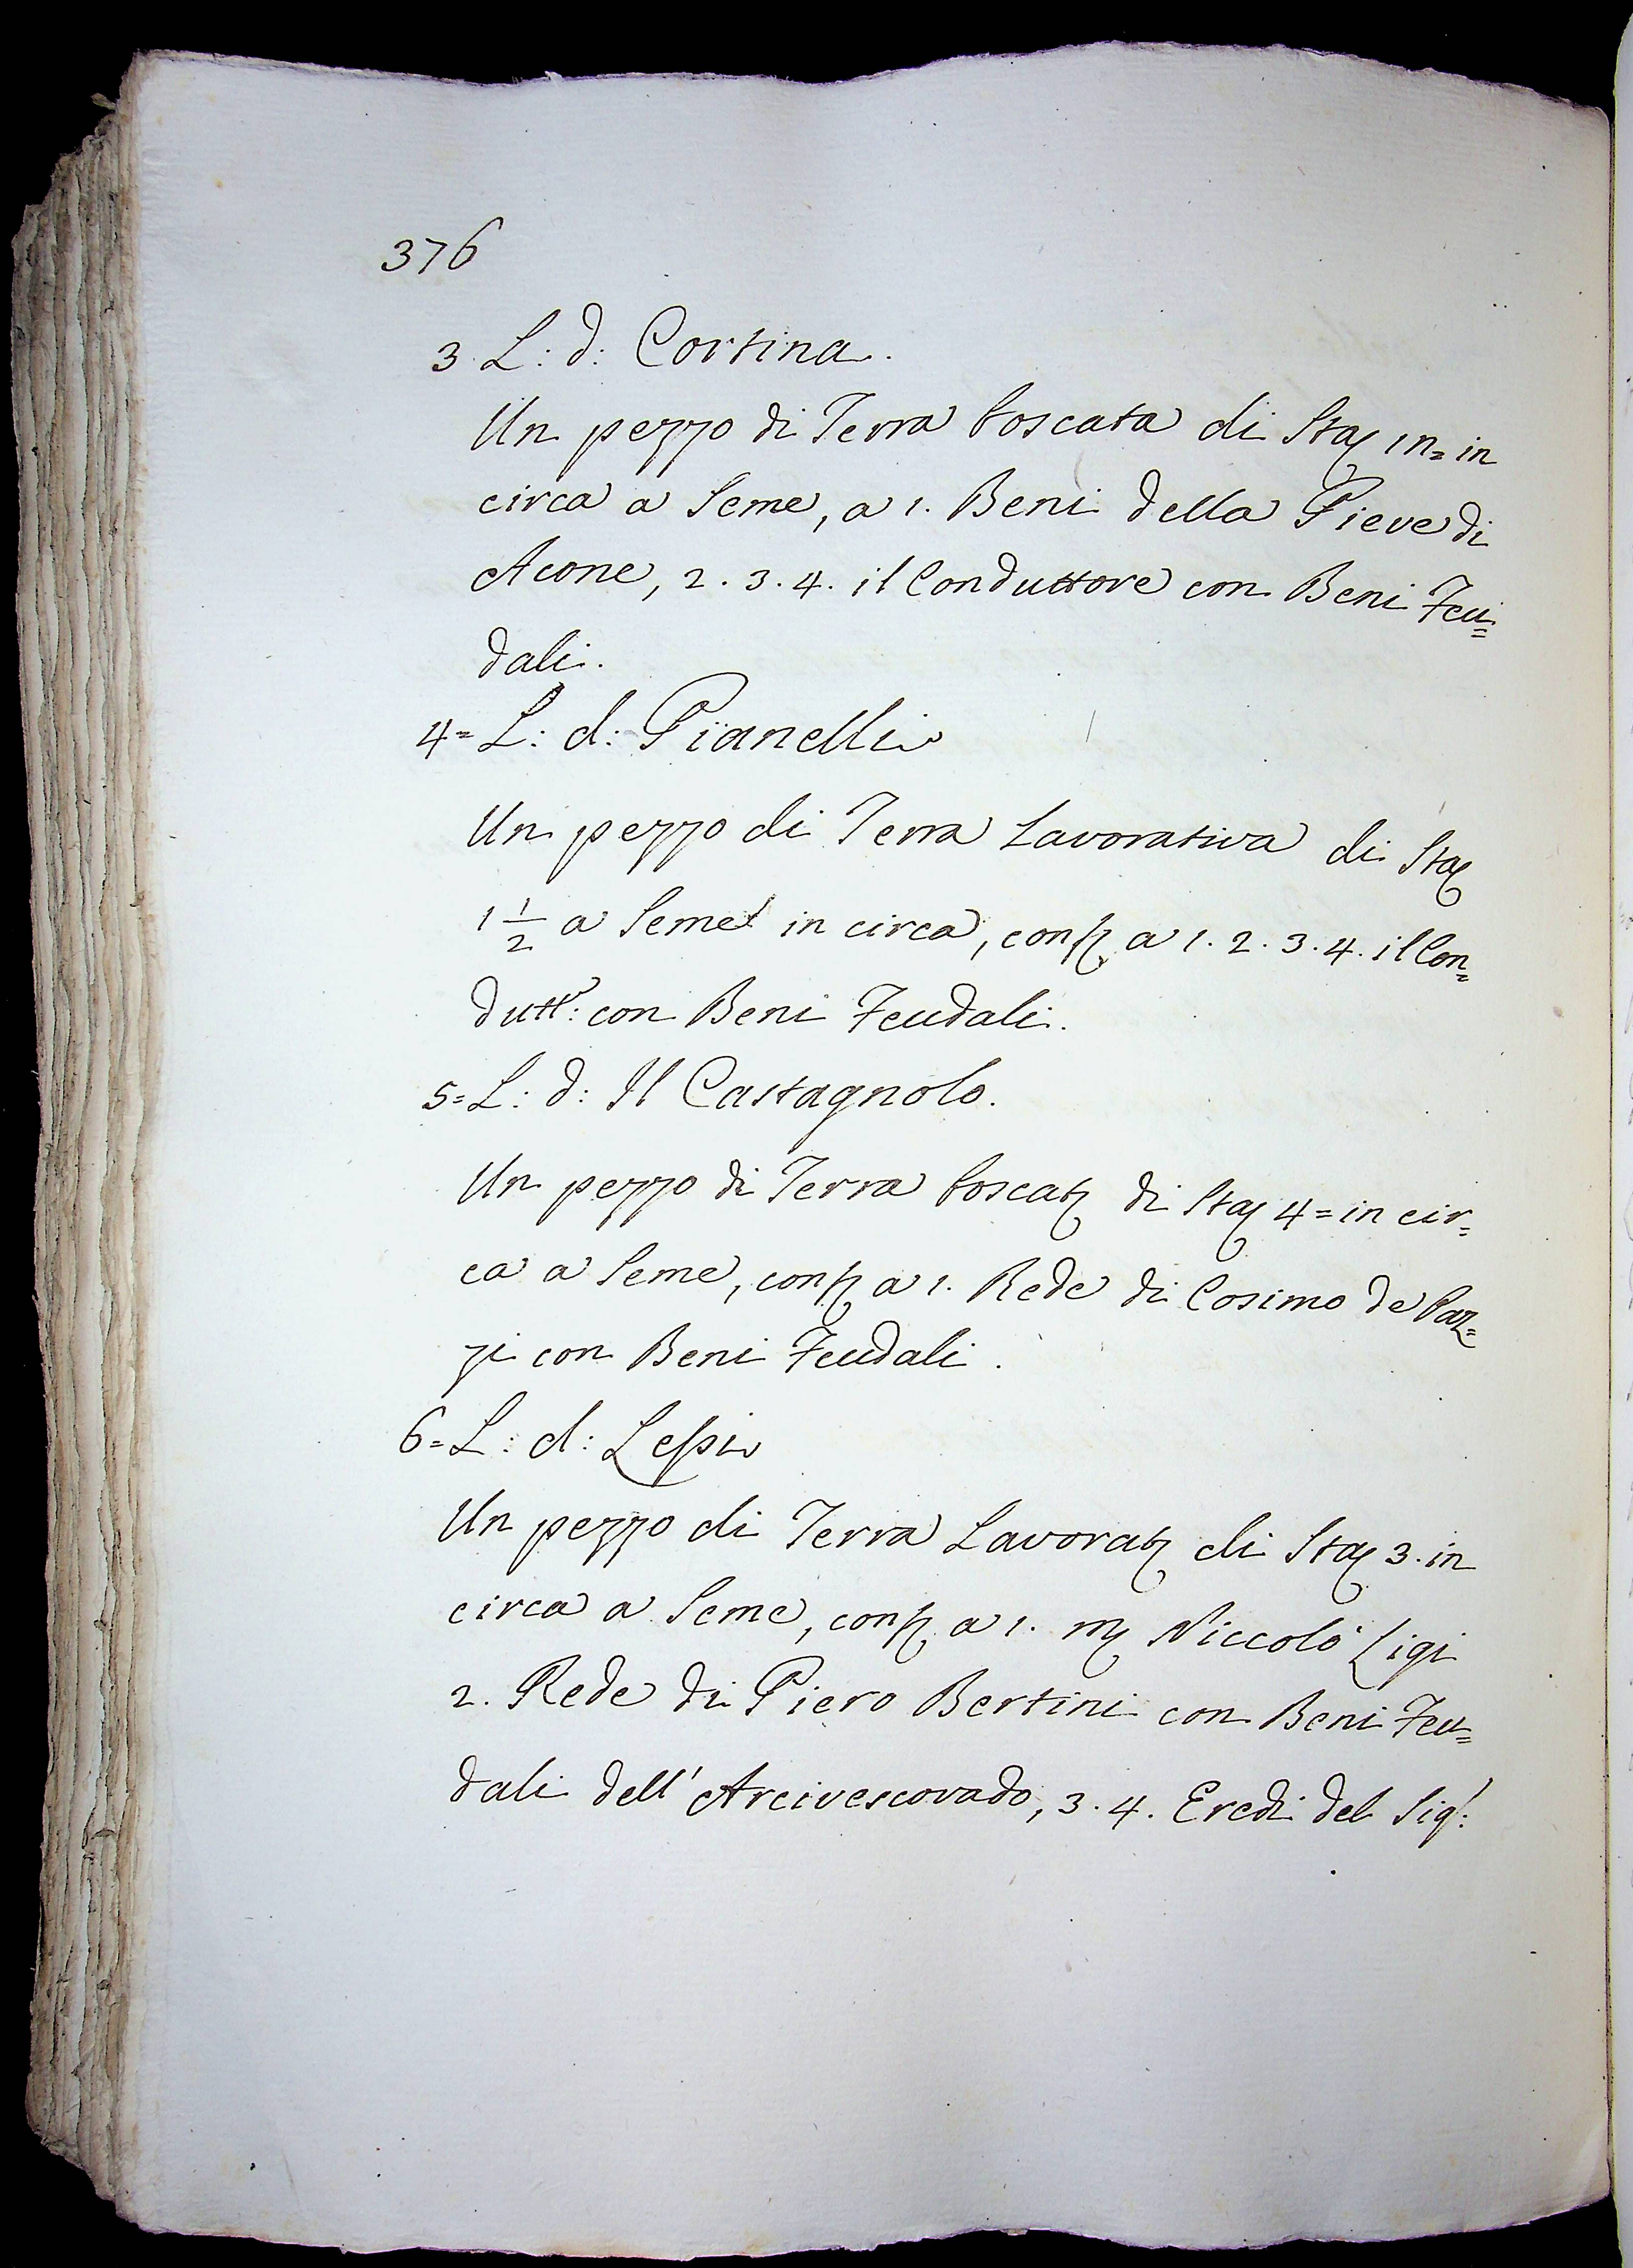 376
3. L: d: Cortina.
Un pezzo di Terra boscata di Sta in= in
circa a Seme, a 1. Beni della Pieve di
Acone, 2. 3. 4. il Conduttore con Beni Feu=
dali.
4= L: d: Pianelli
Un pezzo di Terra Lavorativa di Sta
1 1/2 a Seme in circa, conf. a 1. 2. 3. 4. il Con=
dutt.e: con Beni Feudali.
5= L: d: Il Castagnolo.
Un pezzo di Terra boscat. di Sta 4= in cir=
ca a Seme, conf. a 1. Rede di Cosimo de Paz=
zi con Beni Feudali.
6= L: d: Lessi
Un pezzo di Terra Lavorat. di Sta 3. in
circa a Seme, conf. a 1. M. Niccolò Ligi
2. Rede di Piero Bertini con Beni Feu=
dali dell' Arcivescovado, 3. 4. Eredi del Sig: